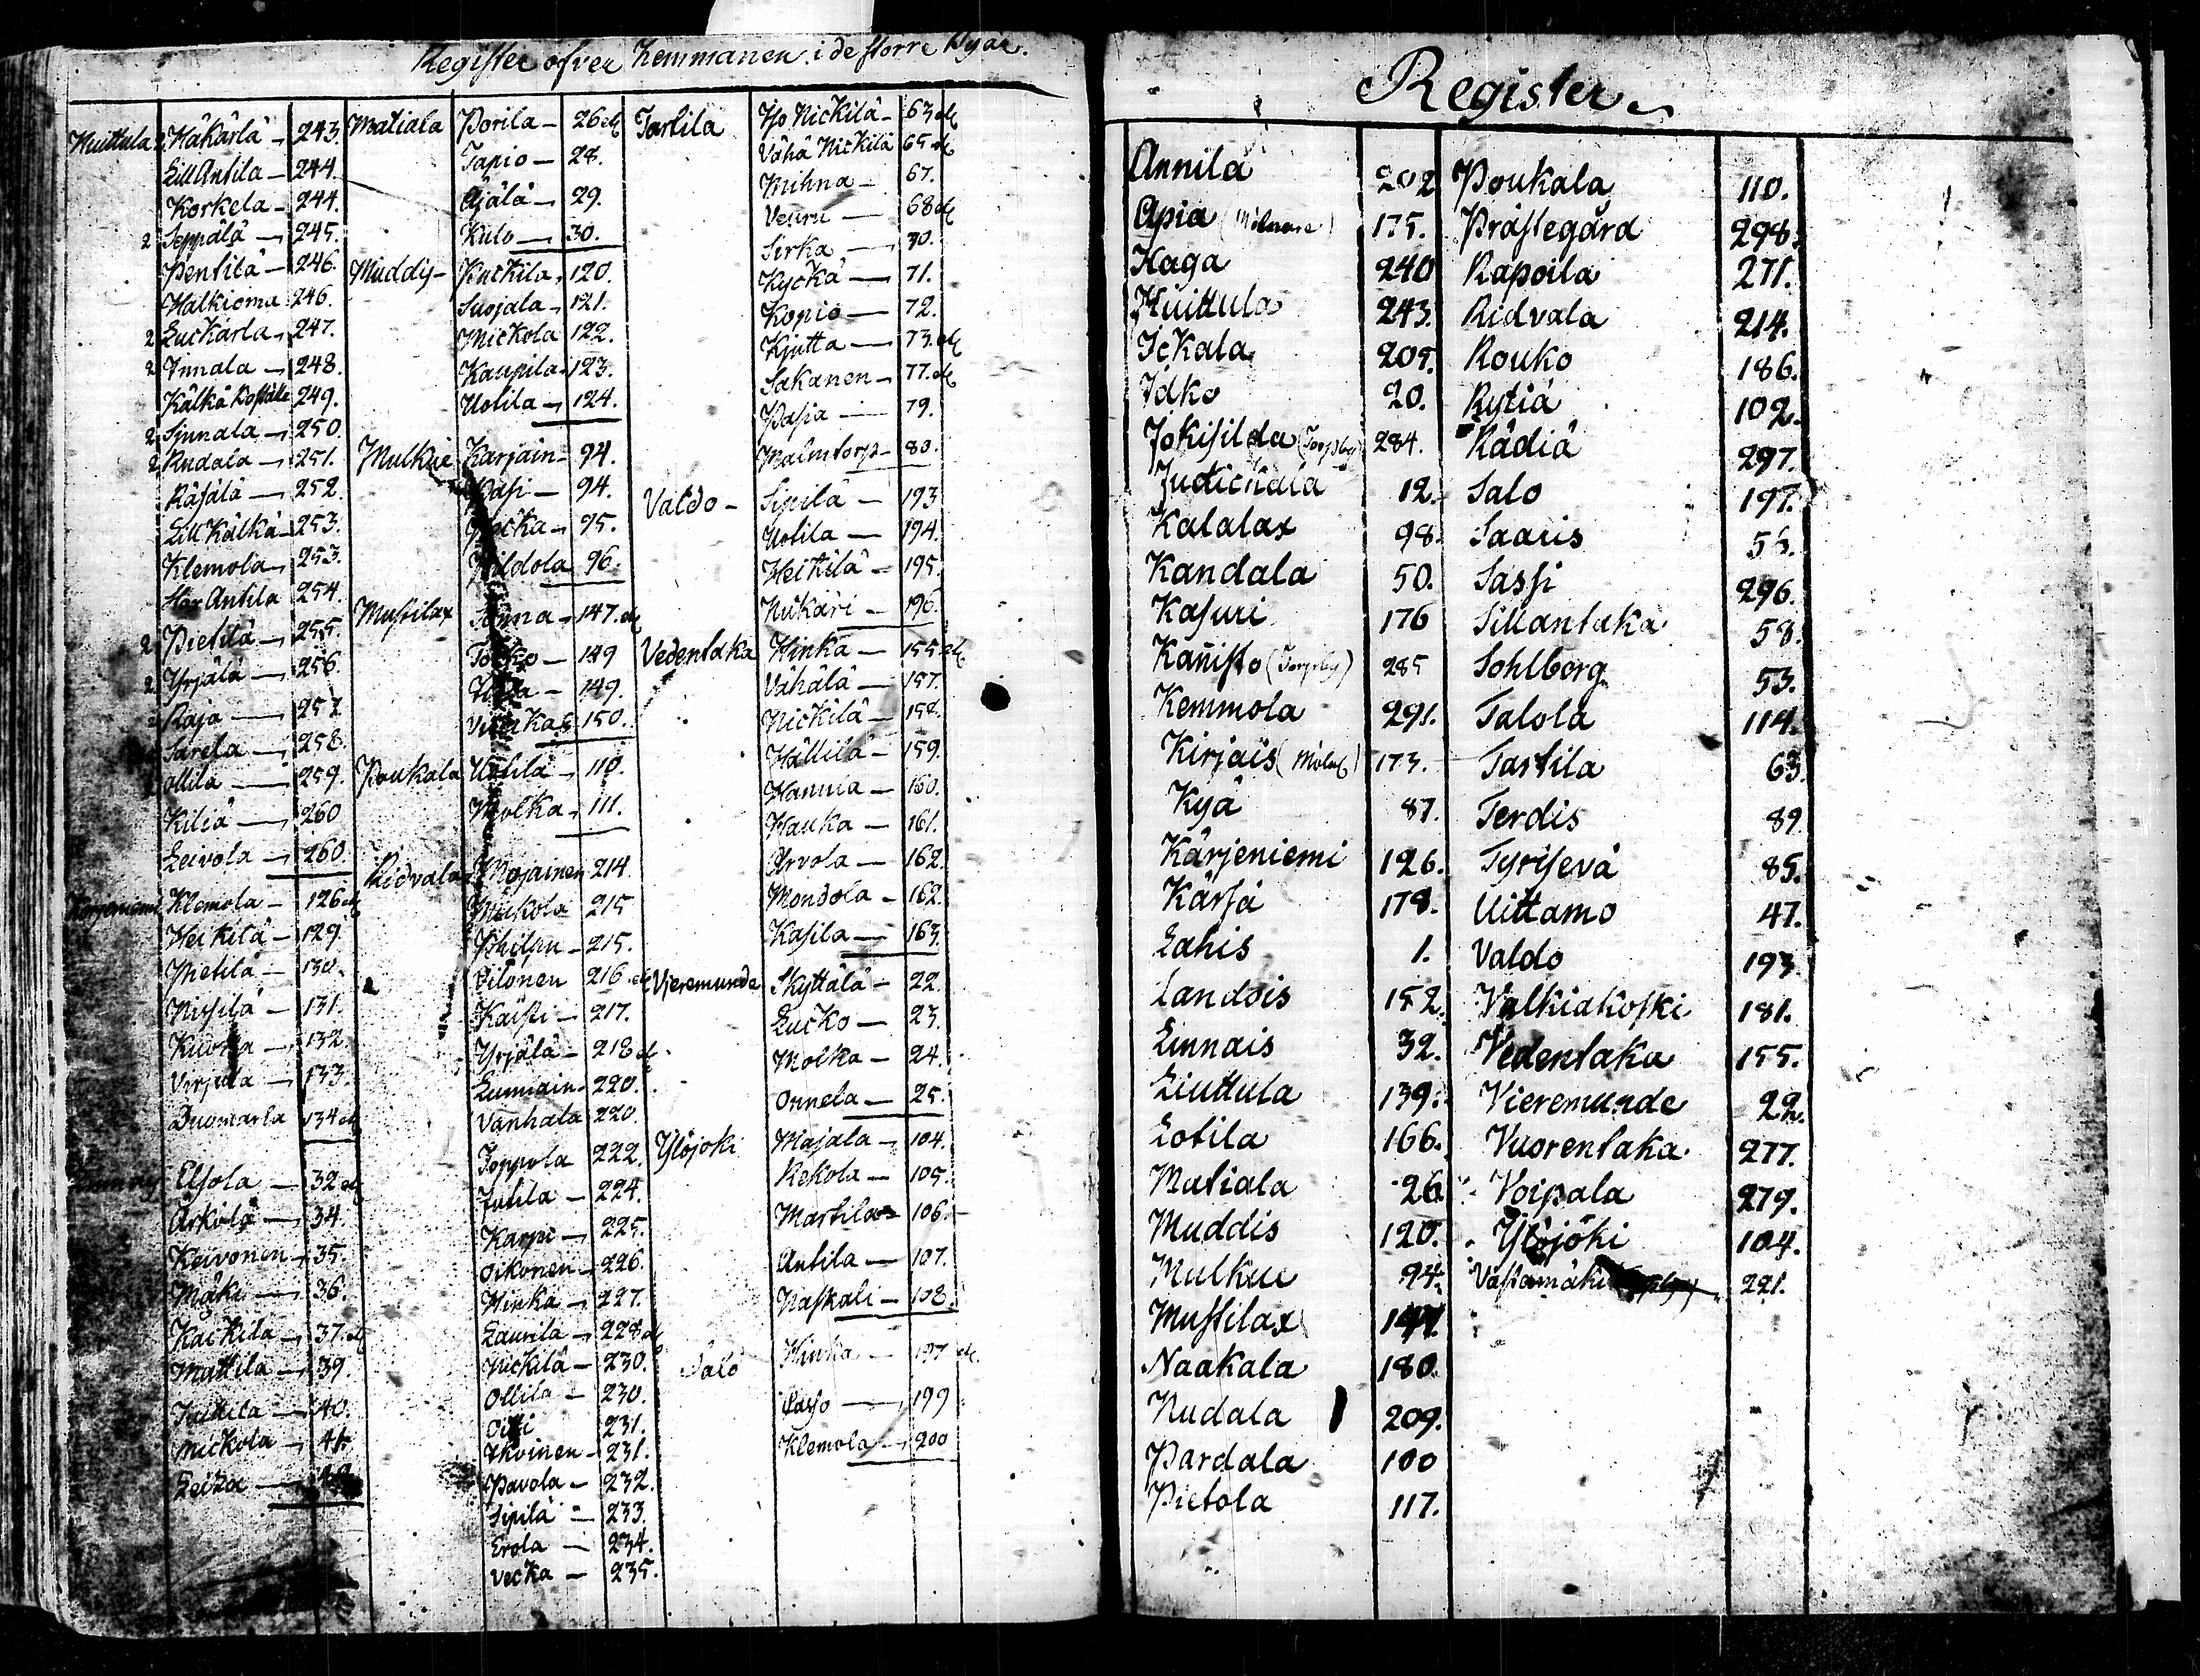 Register ofver Hemmanen i de storre Byar.
Huittula 2 Häkärlä — 243.
Lill Antila — 244.
Korkela — 244.
2 Seppälä — 245.
Pentilä — 246.
Walkioma 246.
2 Luckarla — 247.
2 Innala — 248.
Kälkä Boställe 249.
2 Sjunala — 250.
2 Rudala — 251.
Räsälä — 252.
Lill Kälkä — 253.
Klemola — 253.
Stor Antila 254.
2 Pietilä — 255.
2 Yrjälä — 256.
2 Raja — 257
Sarela — 258.
ollila — 259.
Kiliä — 260
Leivola — 260.
Kärjeniemi Klemola — 126
Heikilä — 129.
Pietilä — 130.
Nisilä — 131.
132.
133.
Duomarla 134
Elsola — 32
Arkola — 34.
Keivonen — 35.
Mäki — 36.
Kaickila — 37.
Mattila — 39.
40.
Nickola — 41.
Matiala Porila — 26
Tapio — 28.
Äjälä — 29.
Kulo — 30.
Muddis — Kuckila 120.
Suojala — 121.
Mickola 122.
Kaupila — 123.
Uotila — 124.
Mulkue Karjain — 94.
Pasi — 94.
95.
96.
Mustilax 147.
149
149.
150.
Poukala Uotila — 110.
111.
Ridvala Mojainen 214.
Mickola 215
Philpu — 215.
Oilonen 216.
Kaisti — 217.
Yrjälä — 218
Lumiain — 220.
Vanhala 220.
Toppola 222.
Jutila — 224.
Karpi — 225.
Oikonen — 226.
Hinka — 227.
Laurila — 228
Nickilä — 230.
Ollila — 230.
231.
Ikoinen — 231.
Pavola — 232.
Sipilä — 233.
Erola — 234.
Vecka — 235.
Tartila Iso Nickilä — 63
Vähä Nickilä 65
Mihna — 67.
Veuru — 68
Sirka — 70.
Kyckä — 71.
Kopio — 72.
Kjutta — 73.
Sakanen — 77.
Pasia — 79.
Malmtorp — 80.
Valdo — Sipilä — 193
Uotila — 194.
Heikilä — 195.
Nikäri — 196.
Vedentaka Hinka — 155
Vähälä — 157.
Nickilä — 158.
Hällilä — 159.
Hannia — 160.
Hauka — 161.
Arvola — 162.
Mondola — 162.
Kasila — 163.
Vieremunde Skyttälä — 22.
Lucko — 23.
Molka — 24.
Onnela — 25.
Ylöjoki Majala — 104.
Rekola — 105.
Martila — 106.
Antila — 107.
Naskali — 108.
Salo Hinka — 197
Sasso — 199
Klemola — 200
Register
Annila 202 Poukala 110.
Apia (Molnare) 175. Prästegård 298.
Haga 240 Rapoila 271.
Huittula 243. Ridvala 214.
Ickala 205. Rouko 186.
Idko 20. Rytiä 102.
Jokisilda (Torpby) 284. Rädiä 297.
Judickala 12. Salo 197.
Kalalax 98. Saaris 55.
Kandala 50. Sassi 296.
Kasuri 176 Sillantaka 58.
Kañisto (Torpby) 285 Sohlberg 53.
Kemmola 291. Talola 114.
Kirjais (Moln) 173. Tartila 63
Kyä 87. Terdis 89
Kärjeniemi 126. Tyrisevä 85.
Kärsä 178. Uittamo 47.
Lahis 1. Valdo 193
Landois 152. Valkiakoski 181.
Linnais 32. Vedentaka 155.
Liuttula 139. Vieremunde 22.
Lotila 166. Vuorentaka 277.
Matiala 26. Voipala 279.
Muddis 120. Ylöjöki 104.
Mulkue 94. Vastamäki 221.
Mustilax 147.
Naakala 180.
Nudala 209.
Pardala 100
Pietola 117.